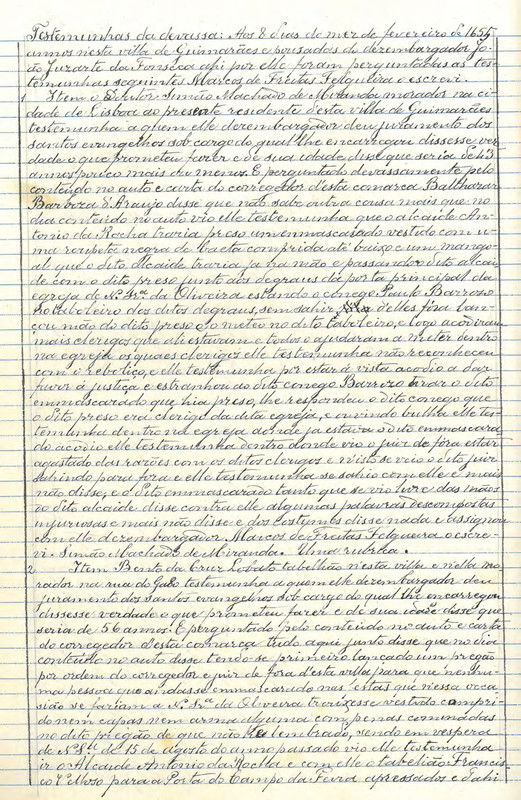 Testemunhas da devassa: Aos 8 dias do mez de fevereiro de 1655
annos nesta villa de Guimarães e pousadas do dezembargador Jo-
ão Juzarte da Fonseca ahi por elle foram perguntadas as tes-
temunhas seguintes Marcos de Freitas Folgueira o escrevi.
1 Item o Doutor Simão Machado de Miranda morador na ci-
dade de Lisboa ao presente residente desta villa de Guimarães
testemunha a quem elle dezembargador deu juramento dos
santos evangelhos sob cargo do qual lhe encarregou dissesse ver-
dade o que prometeu fazer e de sua idade disse que seria de 43
annos pouco mais ou menos. E perguntado devassamente pelo
contheudo no auto e carta do corregedor d'esta comarca Balthazar
Barboza d'Araujo disse que não sabe outra cousa mais que no
dia contéudo no auto vio elle testemunha que o alcaide An-
tonio da Rocha trazia preso um enmascarado vestido com u-
ma roupeta negra de baeta comprida até baixo e um mango-
al que o dito alcaide trazia ja na mão e passando o dito alcai-
de com o dito preso junto aos degraus da porta principal da
egreja de N. Srª da Oliveira estando o conego Paulo Barrozo
no taboleiro dos ditos degraus, sem sahir d'elles fóra lan-
çou mão do dito preso e o meteo no dito taboleiro, e logo acodiram
mais clerigos que ali estavam e todos o ajudaram a meter dentro
na egreja os quaes clerigos elle testemunha não reconheceu
com o rebotiço, e elle testemunha por estar á vista acodio a dar
favor á justiça e estranhou ao dito conego Barrozo tirar o dito
emmascarado que hia preso, lhe respondeu o dito conego que
o dito preso era clerigo da dita egreja, e ouvindo bulha elle tes-
temunha dentro na egreja aonde ja estava o dito emmascara-
do acodio elle testemunha dentro donde vio o juiz de fóra estar
agastado das razões com os ditos clerigos e n'isto se veio o dito juiz
sahindo para fora e elle testemunha se sahio com elle e mais
não disse, e o dito emmascarado tanto que se vio livre das mãos
do dito alcaide disse contra elle algumas palavras descompostas
injuriosas e mais não disse e dos costumes disse nada e assignou
com elle dezembargador Marcos de Freitas Folgueira o escre-
vi. Simão Machado de Miranda. Uma rubrica.
2 Item Bento da Cruz Lobato tabelião nesta villa e nella mo-
rador na rua do Gado testemunha a quem elle dezembargador deu
juramento dos santos evangelhos sob cargo do qual lhe encarregou
dissesse verdade o que prometeu fazer e de sua idade disse que
seria de 56 annos. E perguntado pelo contéudo no auto e carta
do corregedor d'esta comarca tudo aqui junto disse que no dia
contéudo no auto disse tendo se primeiro lançado um pregão
por ordem do corregedor e juiz de fora d'esta villa para que nenhu-
ma pessoa que andasse emmascarado nas festas que nessa occa-
sião se faziam a N. Srª da Oliveira trouxesse vestido compri-
do nem capas nem arma alguma com penas comminadas
no dito pregão de que não é lembrado, sendo em vespera
de N. Srª de 15 de agosto do anno passado vio elle testemunha
ir o Alcaide Antonio da Rocha e com elle o tabelião Francis-
co Velloso para a Porta do Campo da Feira apressados e d'ahi